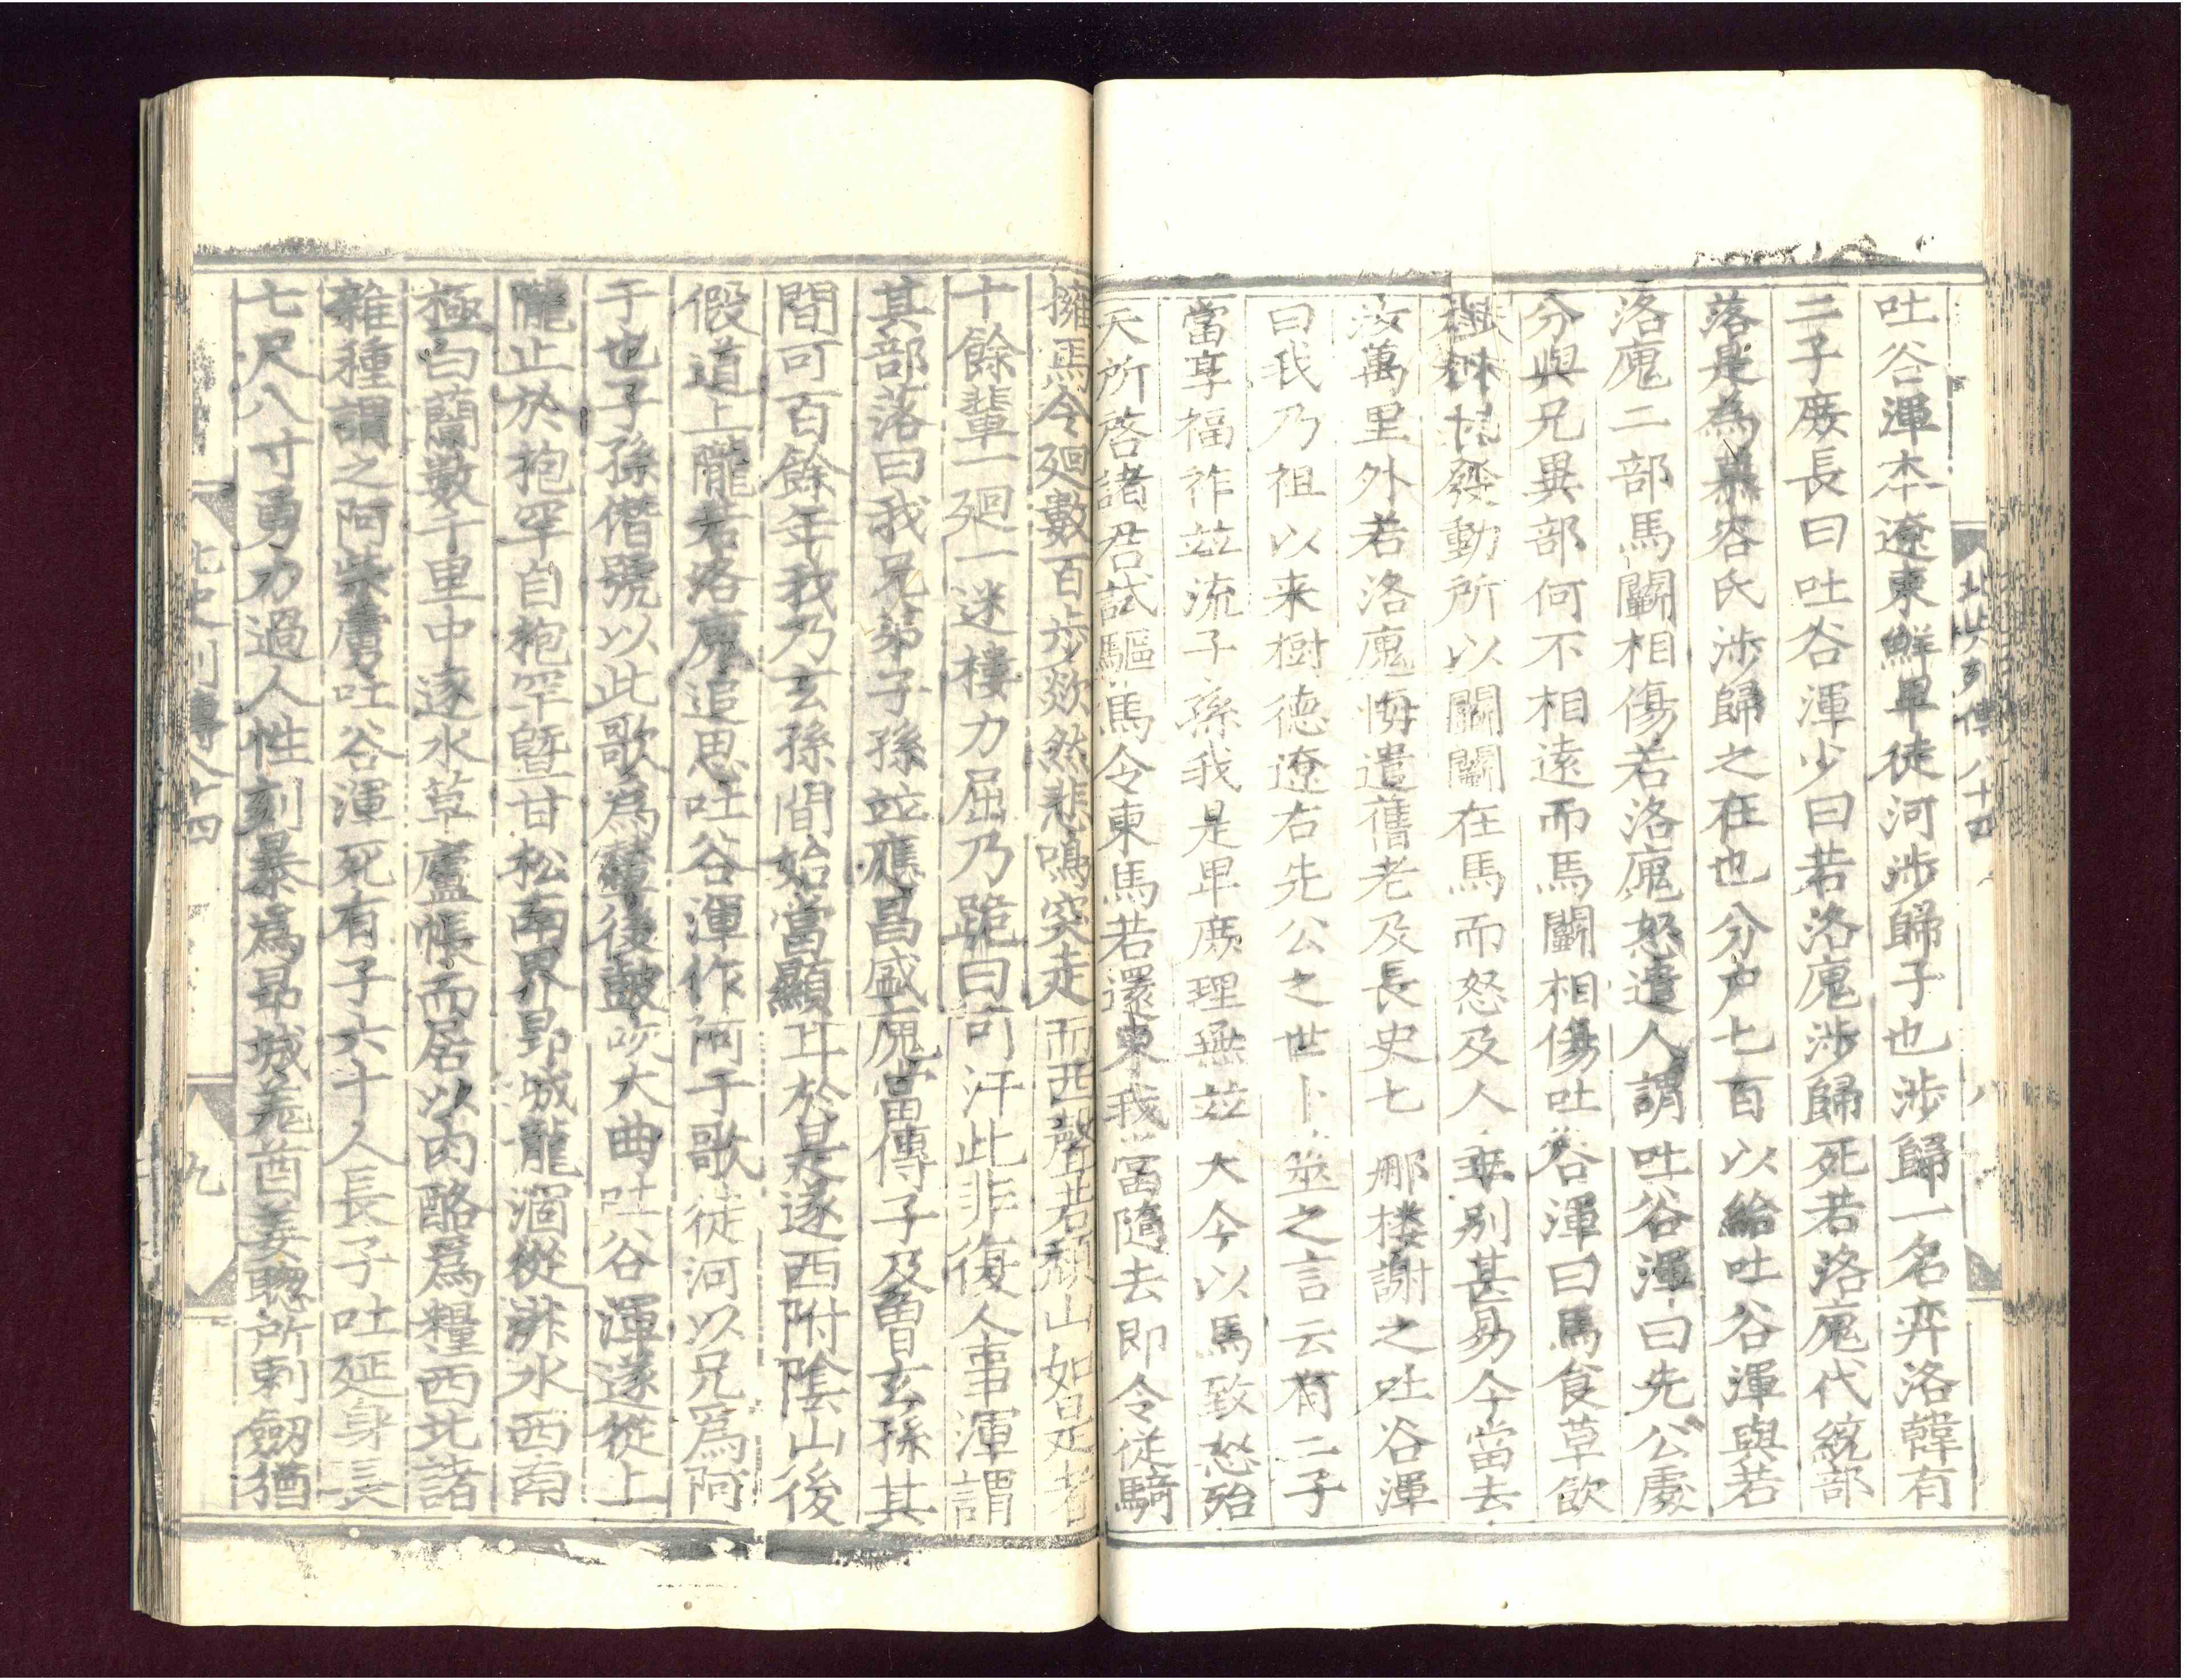 吐谷渾本遼東鮮卑徒河涉歸子也涉歸一名弈洛韓有
二子庶長曰吐谷渾少曰若洛廆涉歸死若洛廆代統部
落是為慕容氏涉歸之在也分户七百以給吐谷渾與若
洛廆二部馬鬭相傷若洛廆怒遣人謂吐谷渾曰先公處
分與兄異部何不相遠而馬鬭相傷吐谷渾曰馬食草飲
發動所以鬭鬭在馬而怒及人乖别甚易今當去
汝萬里外若洛廆悔遣舊老及長史七那樓謝之吐谷渾
曰我乃祖以来樹德遼右先公之世卜筮之言云有二子
當享福祚並流子孫我是卑庶理無並大今以馬致怒殆
天所啓諸君試驅馬令東馬若還東我當隨去即令從騎
擁馬令廻數百步欻然悲鳴突走而西聲若頹山如是者
十餘輩一廻一迷樓力屈乃跪曰可汗此非復人事渾謂
其部落曰我兄弟子孫並應昌盛廆當傳子及曾玄孫其
間可百餘年我乃玄孫間始當顯耳於是遂西附陰山後
假道上隴若洛廆追思吐谷渾作阿于歌徒河以兄爲阿
于也子孫僭號以此歌爲輦後鼓吹大曲吐谷渾遂從上
隴止於枹罕自枹罕暨甘松南界昂城龍涸從洮水西南
極白蘭數千里中逐水草廬帳而居以肉酪爲糧西北諸
雜種謂之阿柴虜吐谷渾死有子六十人長子吐延身長
七尺八寸勇力過人性刻暴爲昂城羌酋姜聰所刺劒猶
北史列傳八十四
八
北史列傳八十四
九